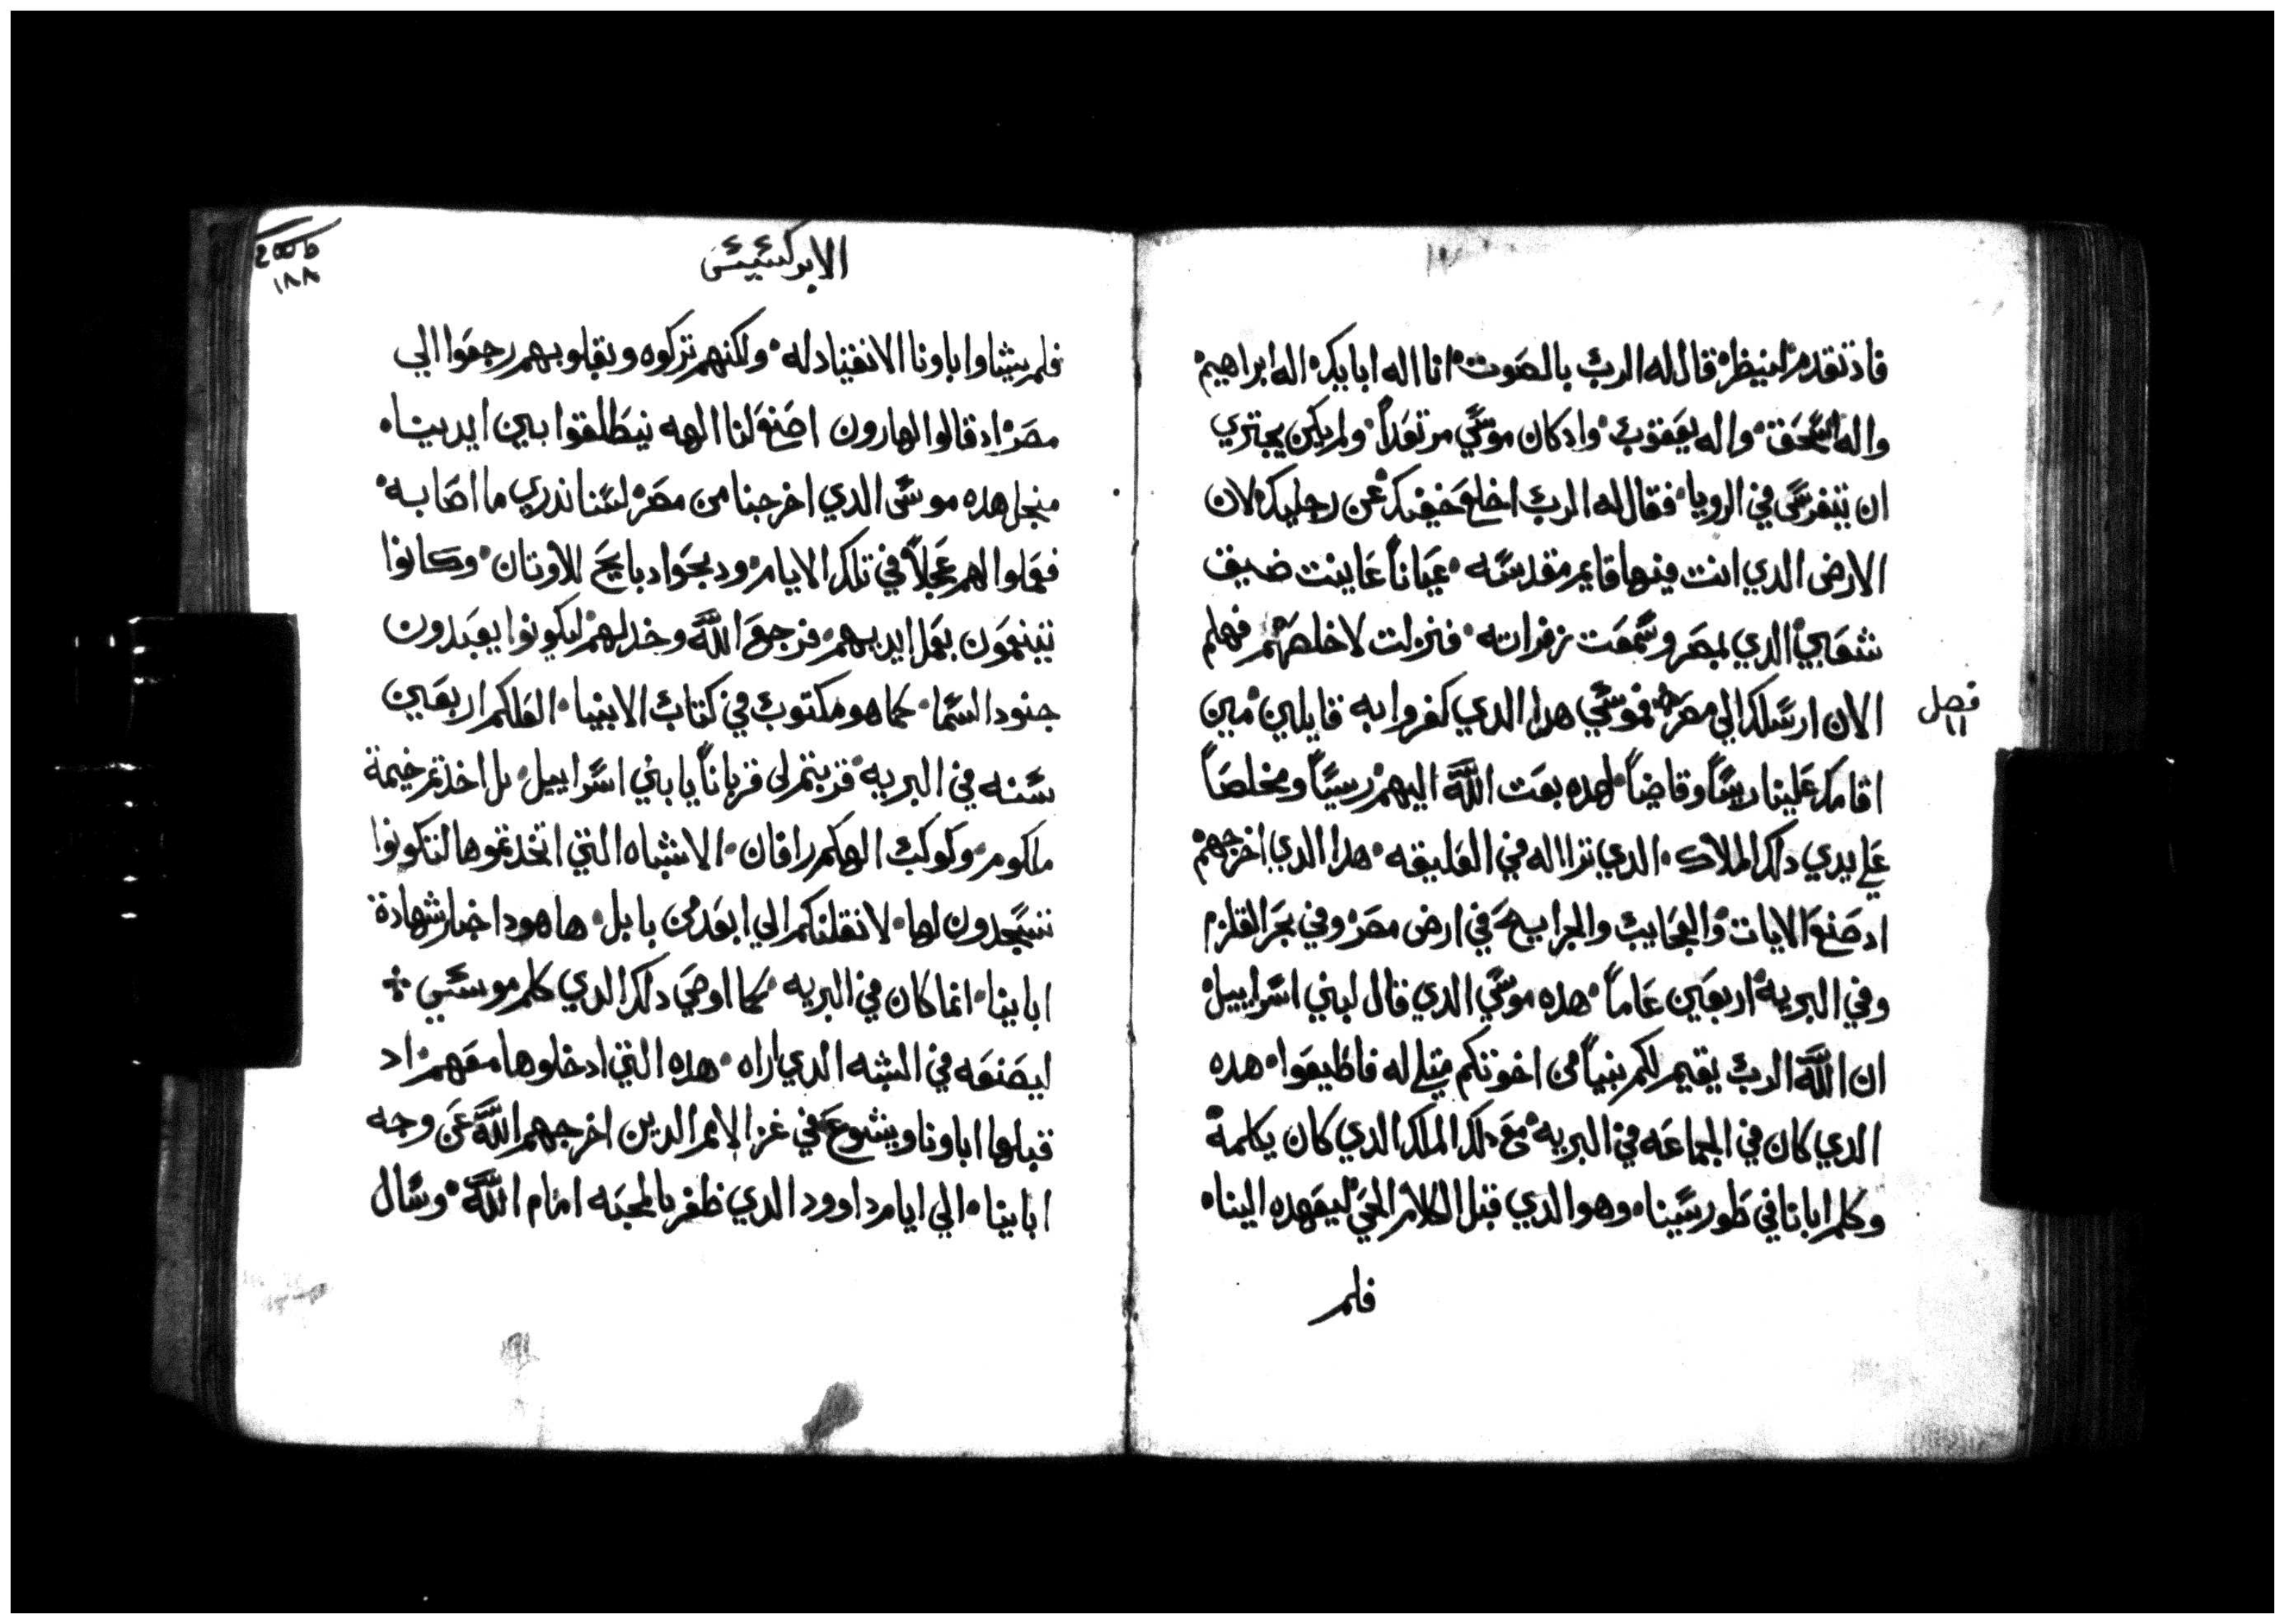 فادتقدم لينظر قال له الرب بالصوت انا اله ابايك اله ابراهيم
واله اسحق واله يعقوب واد كان موسي مرتعداً ولم يكن يجتري
ان يتفرس في الرويا فقال له الرب اخلع خفيك عن رجليك لان
الارض الدي انت فيها قايم مقدسه عياناً عاينت ضيف
شعبي الدي بمصر وسمعت زفراته فنزلت لاخلصهم فهلم
فصل
١١
الان ارسلك الي مصر فموسي هدا الدي كفروا به قايلين مين
اقامك علينا ريساً وقاضياً لهده بعت الله اليهم رسيياً ومخلصاً
علي يدي دلك الملاك الدي تراا له في العليقه هدا الدي اخرجهم
اد صنع الايات والعجايب والجرايح في ارض مصر وفي بحر القلزم
وفي البريه اربعين عاماً هده موسي الدي قال لبني اسراييل
ان الله الرب يقيم لكم نبياً من اخوتكم متلي له فاطيعوا هده
الدي كان في الجماعه في البريه مع دلك الملك الدي كان يكلمه
وكلم ابانا في طور سينا وهو الدي قبل الكلام الحي ليعهده الينا
فلم
الابركسيس
١٨٨
فلم يشاوا اباونا الانقياد له ولكنهم تركوه وبقلوبهم رجعوا الي
مصر اد قالوا لهارون اصنع لنا الهه ينطلقوا بين ايدينا
منجل هده موسي الدي اخرجنا من مصر لسنا ندري ما اصابه
فعملوا لهم عجلاً في تلك الايام ودبحوا دبايح للاوتان وكانوا
يتنعمون بعمل ايديهم فرجع الله وخدلهم ليكونوا يعبدون
جنود السما كما هو مكتوب في كتاب الانبيا العلكم اربعين
سنه في البريه قربتم لي قرباناً يا بني اسراييل بل اخدتم خيمة
ملكوم وكوكب الهكم رافان الاشباه التي اتخدتموها لتكونوا
تسجدون لها لانقلنكم الي ابعد من بابل ها هودا خبا شهادة
اباينا انما كان في البريه كما اوصي دلك الدي كلم موسي
ليصنعه في الشبه الدي اراه هده التي ادخلوها معهم اد
قبلها اباونا ويشوع في غزا الامم الدين اخرجهم الله عن وجه
اباينا الي ايام داوود الدي ظفر بالمحبه امام الله وسال